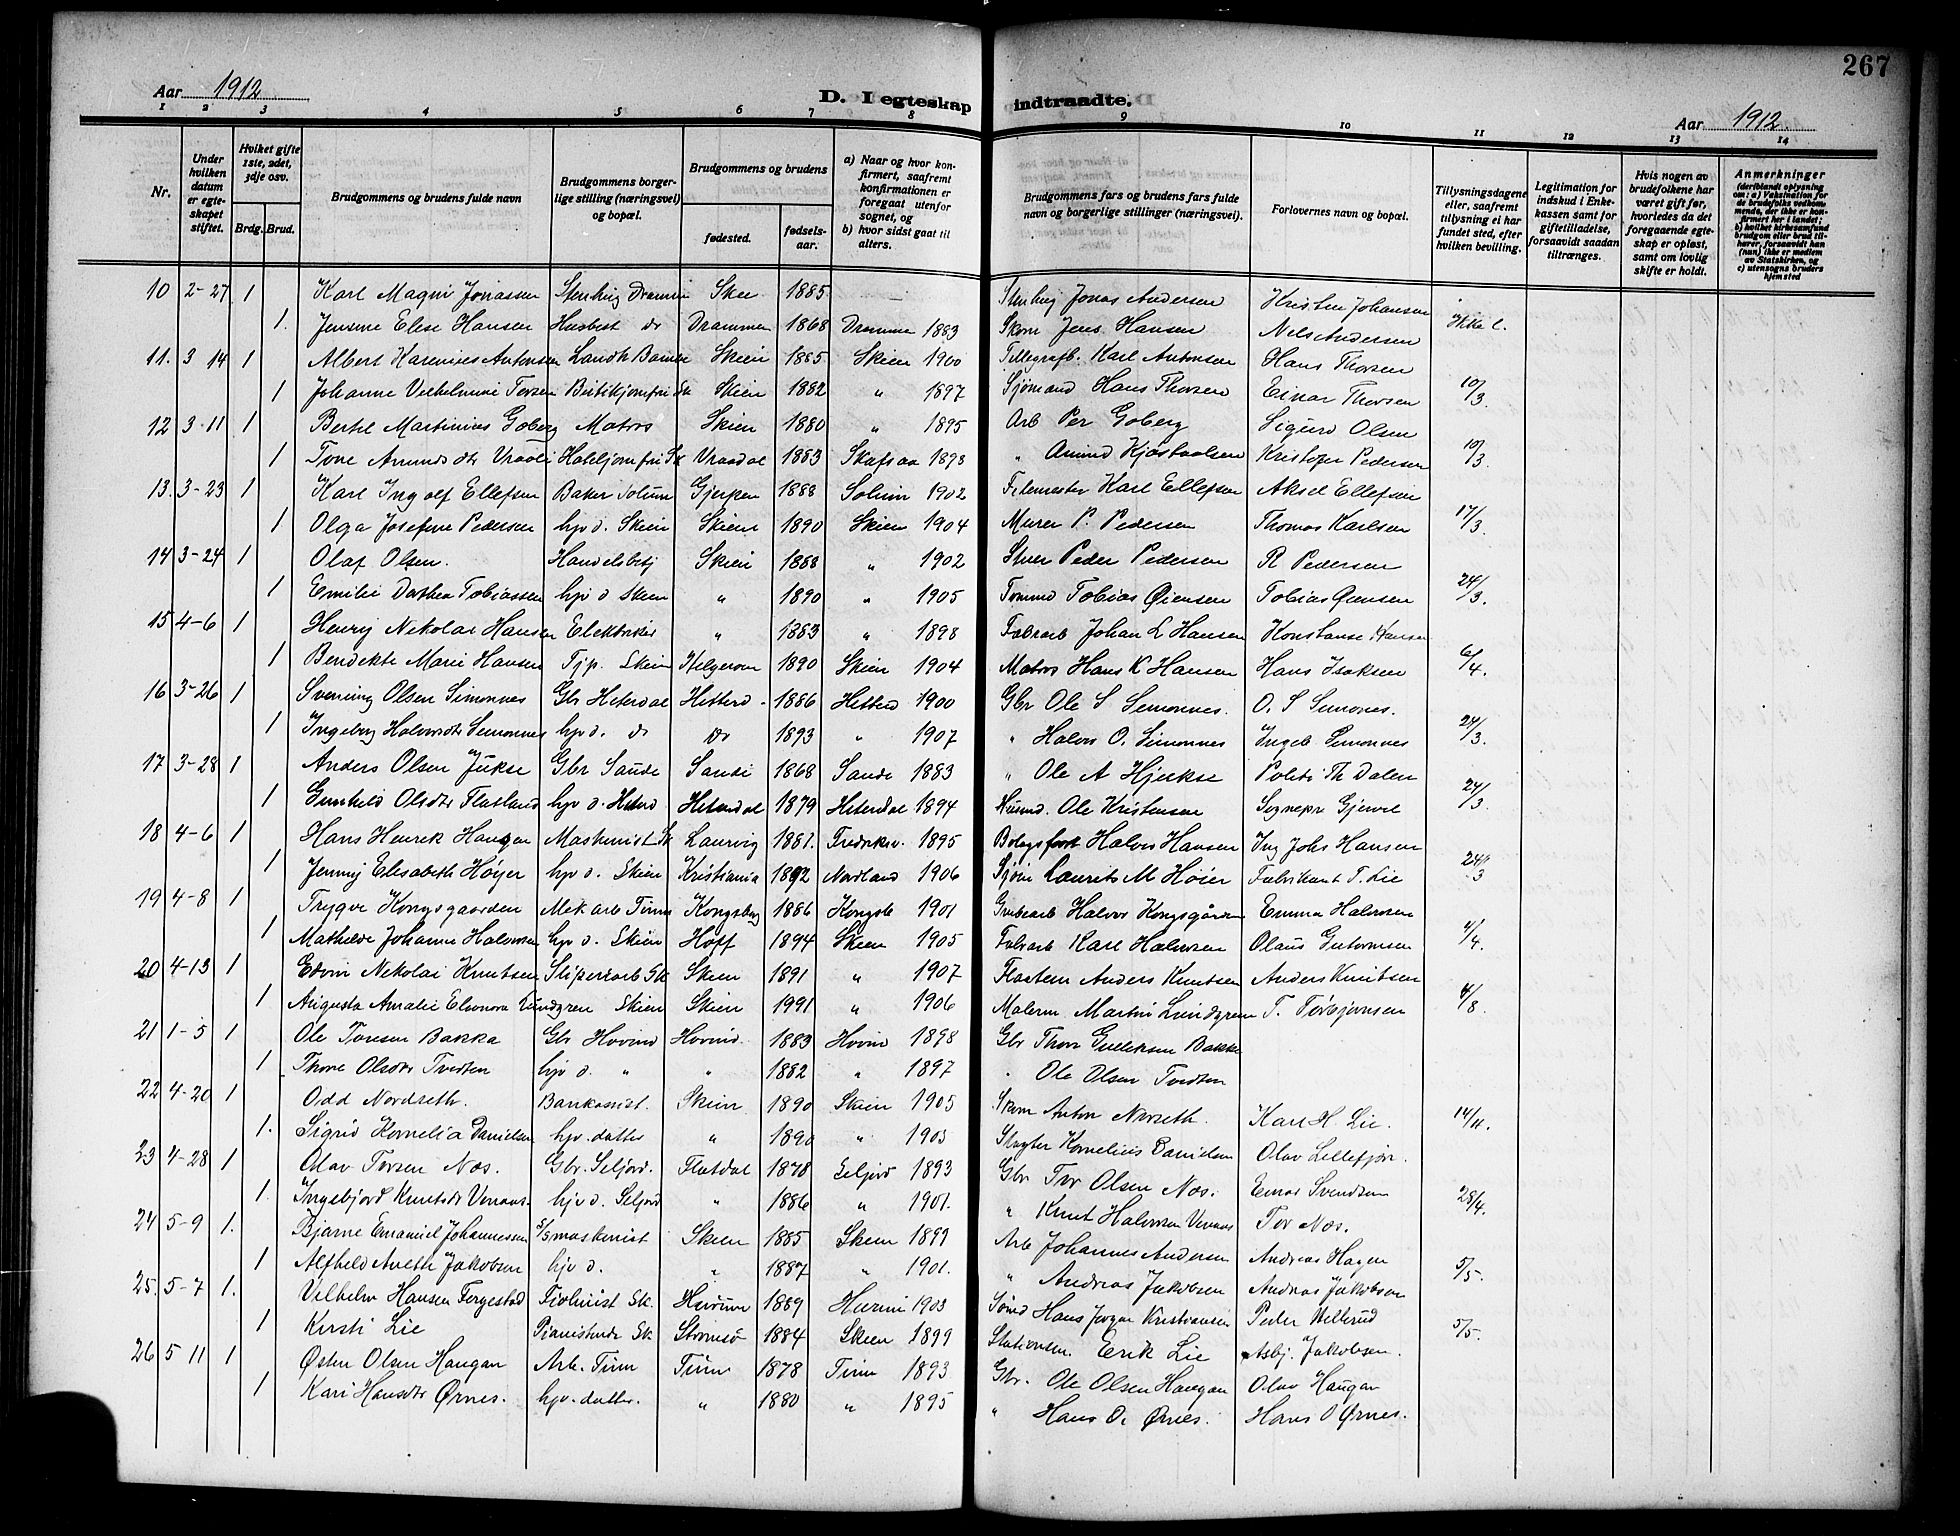 267
Aar 1912
D. I egteskap indtraadte.
Aar 1912.
1 2 3 4 5 6 7 8 9 10 11 12 13 14
Nr.
Under hvilken datum er egteskapet stiftet.
Hvilket gifte 1ste, 2det, 3dje osv.
Brdg. Brud.
Brudgommens og brudens fulde navn
Brudgommens borgerlige stilling (næringsvei) og bopæl.
Brudgommens og brudens
fødested.
fødselsaar.
a) Naar og hvor konfirmert, saafremt konfirmationen er foregaat utenfor sognet, og
b) hvor sidst gaat til alters.
Brudgommens fars og brudens fars fulde navn og borgerlige stillinger (næringsvei).
Forlovernes navn og bopæl.
Tillysningsdagene eller, saafremt tillysning ei har fundet sted, efter hvilken bevilling.
Legitimation for indskud i Enkekassen samt for giftetilladelse, forsaavidt saadan tiltrænges.
Hvis nogen av brudefolkene har været gift før, hvorledes da det foregaaende egteskap er opløst, samt om lovlig skifte er holdt.
Anmerkninger (deriblandt oplysning om: a) Vaksination for de brudefolks vedkommende, der ikke er konfirmert her i landet; b) hvilket kirkesamfund brudgom eller brud tilhører, forsaavidt han (hun) ikke er medlem av Statskirken, og c) utensogns bruders hjemsted
10 2-27 1 Karl Magni Jonassen Skee 1885 Jonas Andersen Kristine Johansen
1. Jensine Elise Hansen Husbest do Drammen 1868 Drammen 1883 Skom Jens Hansen Nels Andersen Ikke l.
11. 3 14 1 Albert Skien 1885 Skien 1900 Karl Antonsen Hans Thorsen
1 Johanne Vilhelmine Skien 1882 " 1897 Sjømand Hans Thorsen Einar Thorsen 10/3.
12 3-11 1 Bertel Martinius Goberg Matros Skien 1880 " 1895 Arb Per Goberg Sigurd Olsen
1 Tone Amunds dtr Vraali Vraadal 1883 Skafsaa 1898 " Amund Kristofer Pedersen 10/3.
13. 3-23 1 Karl Ingolf Ellefsen Baker Solum Gjerpen 1888 Solum 1902 Karl Ellefsen Aksel Ellefsen
1 Olga Josefine Pedersen hjv d. Skien Skien 1890 Skien 1904 Murer P. Pedersen Thomas Karlsen 17/3.
14 3-24 1 Olaf Olsen. Handelsbetj Skien 1888 " 1902 Peder Pedersen R Pedersen
1 Emilie Dorthea Tobiassen hjv d Skien " 1890 " 1905 Tobias Øiensen Tobias Øiensen 24/3.
15 4-6 1 Henry Nikolai Hansen Elektriker " 1883 " 1898 Fabrarb Johan L Hansen Konstanse Hansen
1 Bendikte Marie Hansen Tjp. Skien Helgeroen 1890 Skien 1904 Matros Hans K Hansen Hans Isaksen 6/4.
16 3-26 1 Svening Olsen Simonnes Gbr Heterdal Hitterd 1886 Hitterd 1900 Gbr Ole S Semonnes. O. S Semonnes.
1 Ingeborg Halvorsdtr Semonnes hjv d. do do 1893 " 1907 " Halvor O. Simonnes Ingeb Semonnes 24/3.
17 3-28 1 Anders Olsen Jukse Gbr Saude Sande 1868 Sande 1883 " Ole A Hjerkse Politi Th Dalen
1 Gunhild Olsdtr Flatland hjv d. Heterd Heterdal 1879 Heterdal 1894 Husmd. Ole Kristensen Sognepr Gjervel 24/3.
18 4-6 1 Hans Henrik Hansen Maskinist Sk Laurvig 1881. Fredriksv. 1895 Halvor Hansen Ing Johs Hansen
1 Jenny Elisabeth Høyer hjv d. Skien Kristiania 1892 Nordland 1906 Laurits M Høier Fabrikant T. Lie 24/3
19 4-8 1 Trygve Kongsgaarden Mek arb Tinn Kongsberg 1886 Kongsb 1901 Grubearb Halvor Kongsgården Emma Halvorsen
1 Mathilde Johanne Halvorsen hjv d. Skien Hoff 1894 Skien 1905 Fabrarb Karl Halvorsen Olaus 4/4.
20 4-13 1 Edvin Nikolai Knutsen Sliperiarb Sk Skien 1891 " 1907 Anders Knutsen Anders Knutsen
1 Augusta Amalie Elenora Lundgren Skien Skien 1991 " 1906 Malerm. Martin Lundgren T. Torbjørnsen 4/8.
21 1-5 1 Ole Toresen Bakka Gbr Hovind Hovind. 1883 Hovin 1898 Gbr Thore Gulleksen Bakke
1 Thone Olsdtr Tvedten hjv d. " " 1882 " 1897 " Ole Olsen Tvedten
22 4-20 1 Odd Nordseth. Bankassist. Skien 1890 Skien 1905 Skom Anton Norseth. Karl H. Lie. 14/4.
1. Sigrid Kornelia Danielsen hjv. datter " 1890 " 1905 Slagter Kornelius Danielsen Olav Lillefjor.
23 4-28 1 Olav Torsen Nos. Gbr. Seljord. Flatdal 1878 Seljord 1893 Gbr Tor Olsen Nos. Einar Svendsen
1. Ingebjørd Knutsdtr hjv d. Seljord " 1886 " 1901. " Knut Halvorsen Tor Nos. 28/4.
24 5-9 1. Bjarne Emanuel Johannessen S/S maskinist Skien 1885 Skien 1899 Arb Johannes Andersen Andreas Hagen
1 Alfhild Aneth Jakobsen hjv d. " 1887 " 1901. " Andreas Jakobsen Andreas Jakobsen 5/5.
25. 5-7 1. Vilhelm Hansen Fergestad Fiolinist Sk. Hurum 1889 Hurum 1903 Hans Jørgen Kristiansen Peder Hellerud
1 Kirsti Lie Pianistinde Sk Strømsø 1884 Skien 1899 Stationsm. Erik Lie Asbj. Jakobsen. 5/5.
26 5 11 1 Østen Olsen Haugan Arb. Tinn Tinn 1878 Tinn 1893 Gbr. Ole Olsen Haugan Olav Haugan
1 Kari Hansdtr Ørnes. hjv. datter. " 1880 " 1895 " Hans O. Ørnes. Hans O Ørnes.